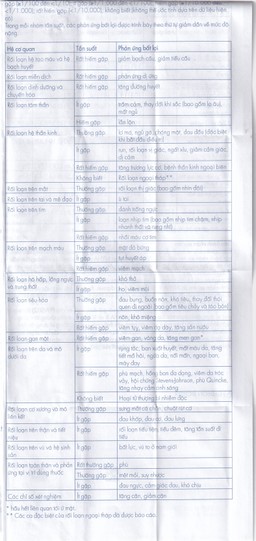 (≥1/1.000), rất hiếm gặp (<1/10.000), không biết
Trong mỗi nhóm tần suất, các phản ứng bất lợi được trình bày theo thứ tự giảm dần về mức độ
nặng.
Hệ cơ quan Tần suất Phản ứng bất lợi
Rối loạn hệ tạo máu và hệ Rất hiếm gặp giảm bạch cầu, giảm tiểu cầu
bạch huyết
Rối loạn miễn dịch Rất hiếm gặp phản ứng dị ứng
Rối loạn dinh dưỡng và Rất hiếm gặp tăng đường huyết
chuyển hóa
Rối loạn tâm thần Ít gặp trầm cảm, thay đổi khí sắc (bao gồm lo âu),
mất ngủ
Hiếm gặp lẫn lộn
Rối loạn hệ thần kinh Thường gặp lơ mơ, ngủ gà, chóng mặt, đau đầu (đặc biệt
khi bắt đầu điều trị)
Ít gặp run, rối loạn vị giác, ngất xỉu, giảm cảm giác,
dị cảm
Rất hiếm gặp tăng trương lực cơ, bệnh thần kinh ngoại biên
Không biết Rối loạn ngoại tháp**
Rối loạn trên mắt Thường gặp rối loạn thị giác (bao gồm nhìn đôi)
Rối loạn trên tai và mê đạo Ít gặp ù tai
Rối loạn trên tim Thường gặp đánh trống ngực
Ít gặp loạn nhịp tim (bao gồm nhịp tim chậm, nhịp
nhanh thất và rung nhĩ)
Rất hiếm gặp nhồi máu cơ tim
Rối loạn trên mạch máu Thường gặp mặt đỏ bừng
Ít gặp tụt huyết áp
Rất hiếm gặp viêm mạch
Rối loạn hô hấp, lồng ngực Thường gặp khó thở
và trung thất Ít gặp ho, viêm mũi
Rối loạn tiêu hóa Thường gặp đau bụng, buồn nôn, khó tiêu, thay đổi thói
quen đi ngoài (bao gồm tiêu chảy và táo bón)
Ít gặp nôn, khô miệng
Rất hiếm gặp viêm tụy, viêm dạ dày, tăng sản nướu
Rối loạn gan mật Rất hiếm gặp viêm gan, vàng da, tăng men gan*
Rối loạn trên da và mô Ít gặp rụng tóc, ban xuất huyết, mất màu da, tăng
dưới da tiết mồ hôi, ngứa da, nổi mẩn, ngoại ban,
mày đay
Rất hiếm gặp phù mạch, hồng ban đa dạng, viêm da tróc
vảy, hội chứng Stevens-Johnson, phù Quincke,
tăng nhạy cảm ánh sáng
Không biết Hoại tử thượng bì nhiễm độc
Rối loạn cơ xương và mô Thường gặp sưng mắt cá chân, chuột rút cơ
liên kết Ít gặp đau khớp, đau cơ, đau lưng
Rối loạn trên thận và tiết Ít gặp rối loạn tiểu tiện, tiểu đêm, tăng tần suất đi
niệu tiểu
Rối loạn trên vú và hệ sinh Ít gặp bất lực, vú to ở nam giới
sản
Rối loạn toàn thân và phản Rất thường gặp phù
ứng tại vị trí dùng thuốc Thường gặp mệt mỏi, suy nhược
Ít gặp đau ngực, cảm giác đau, khó chịu
Các chỉ số xét nghiệm Ít gặp tăng cân, giảm cân
* hầu hết liên quan tới ứ mật
** Các ca đặc biệt của rối loạn ngoại tháp đã được báo cáo.